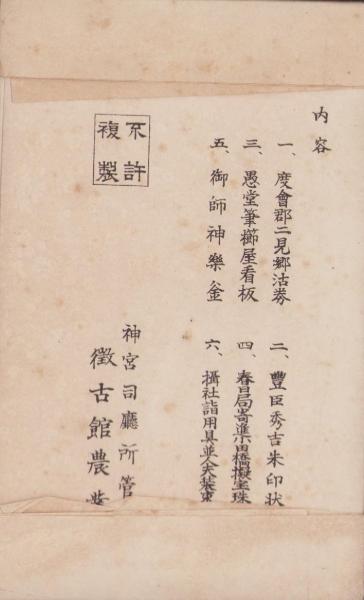 内容
一、度會郡二見郷沽券
二、豐臣秀吉朱印状
三、愚堂筆櫛屋看板
四、春日局寄進宇田橋擬宝珠
五、御師神樂釜
六、攝社詣用具並人夫装束
不許
複製
神宮司廳所管
徴古館農業